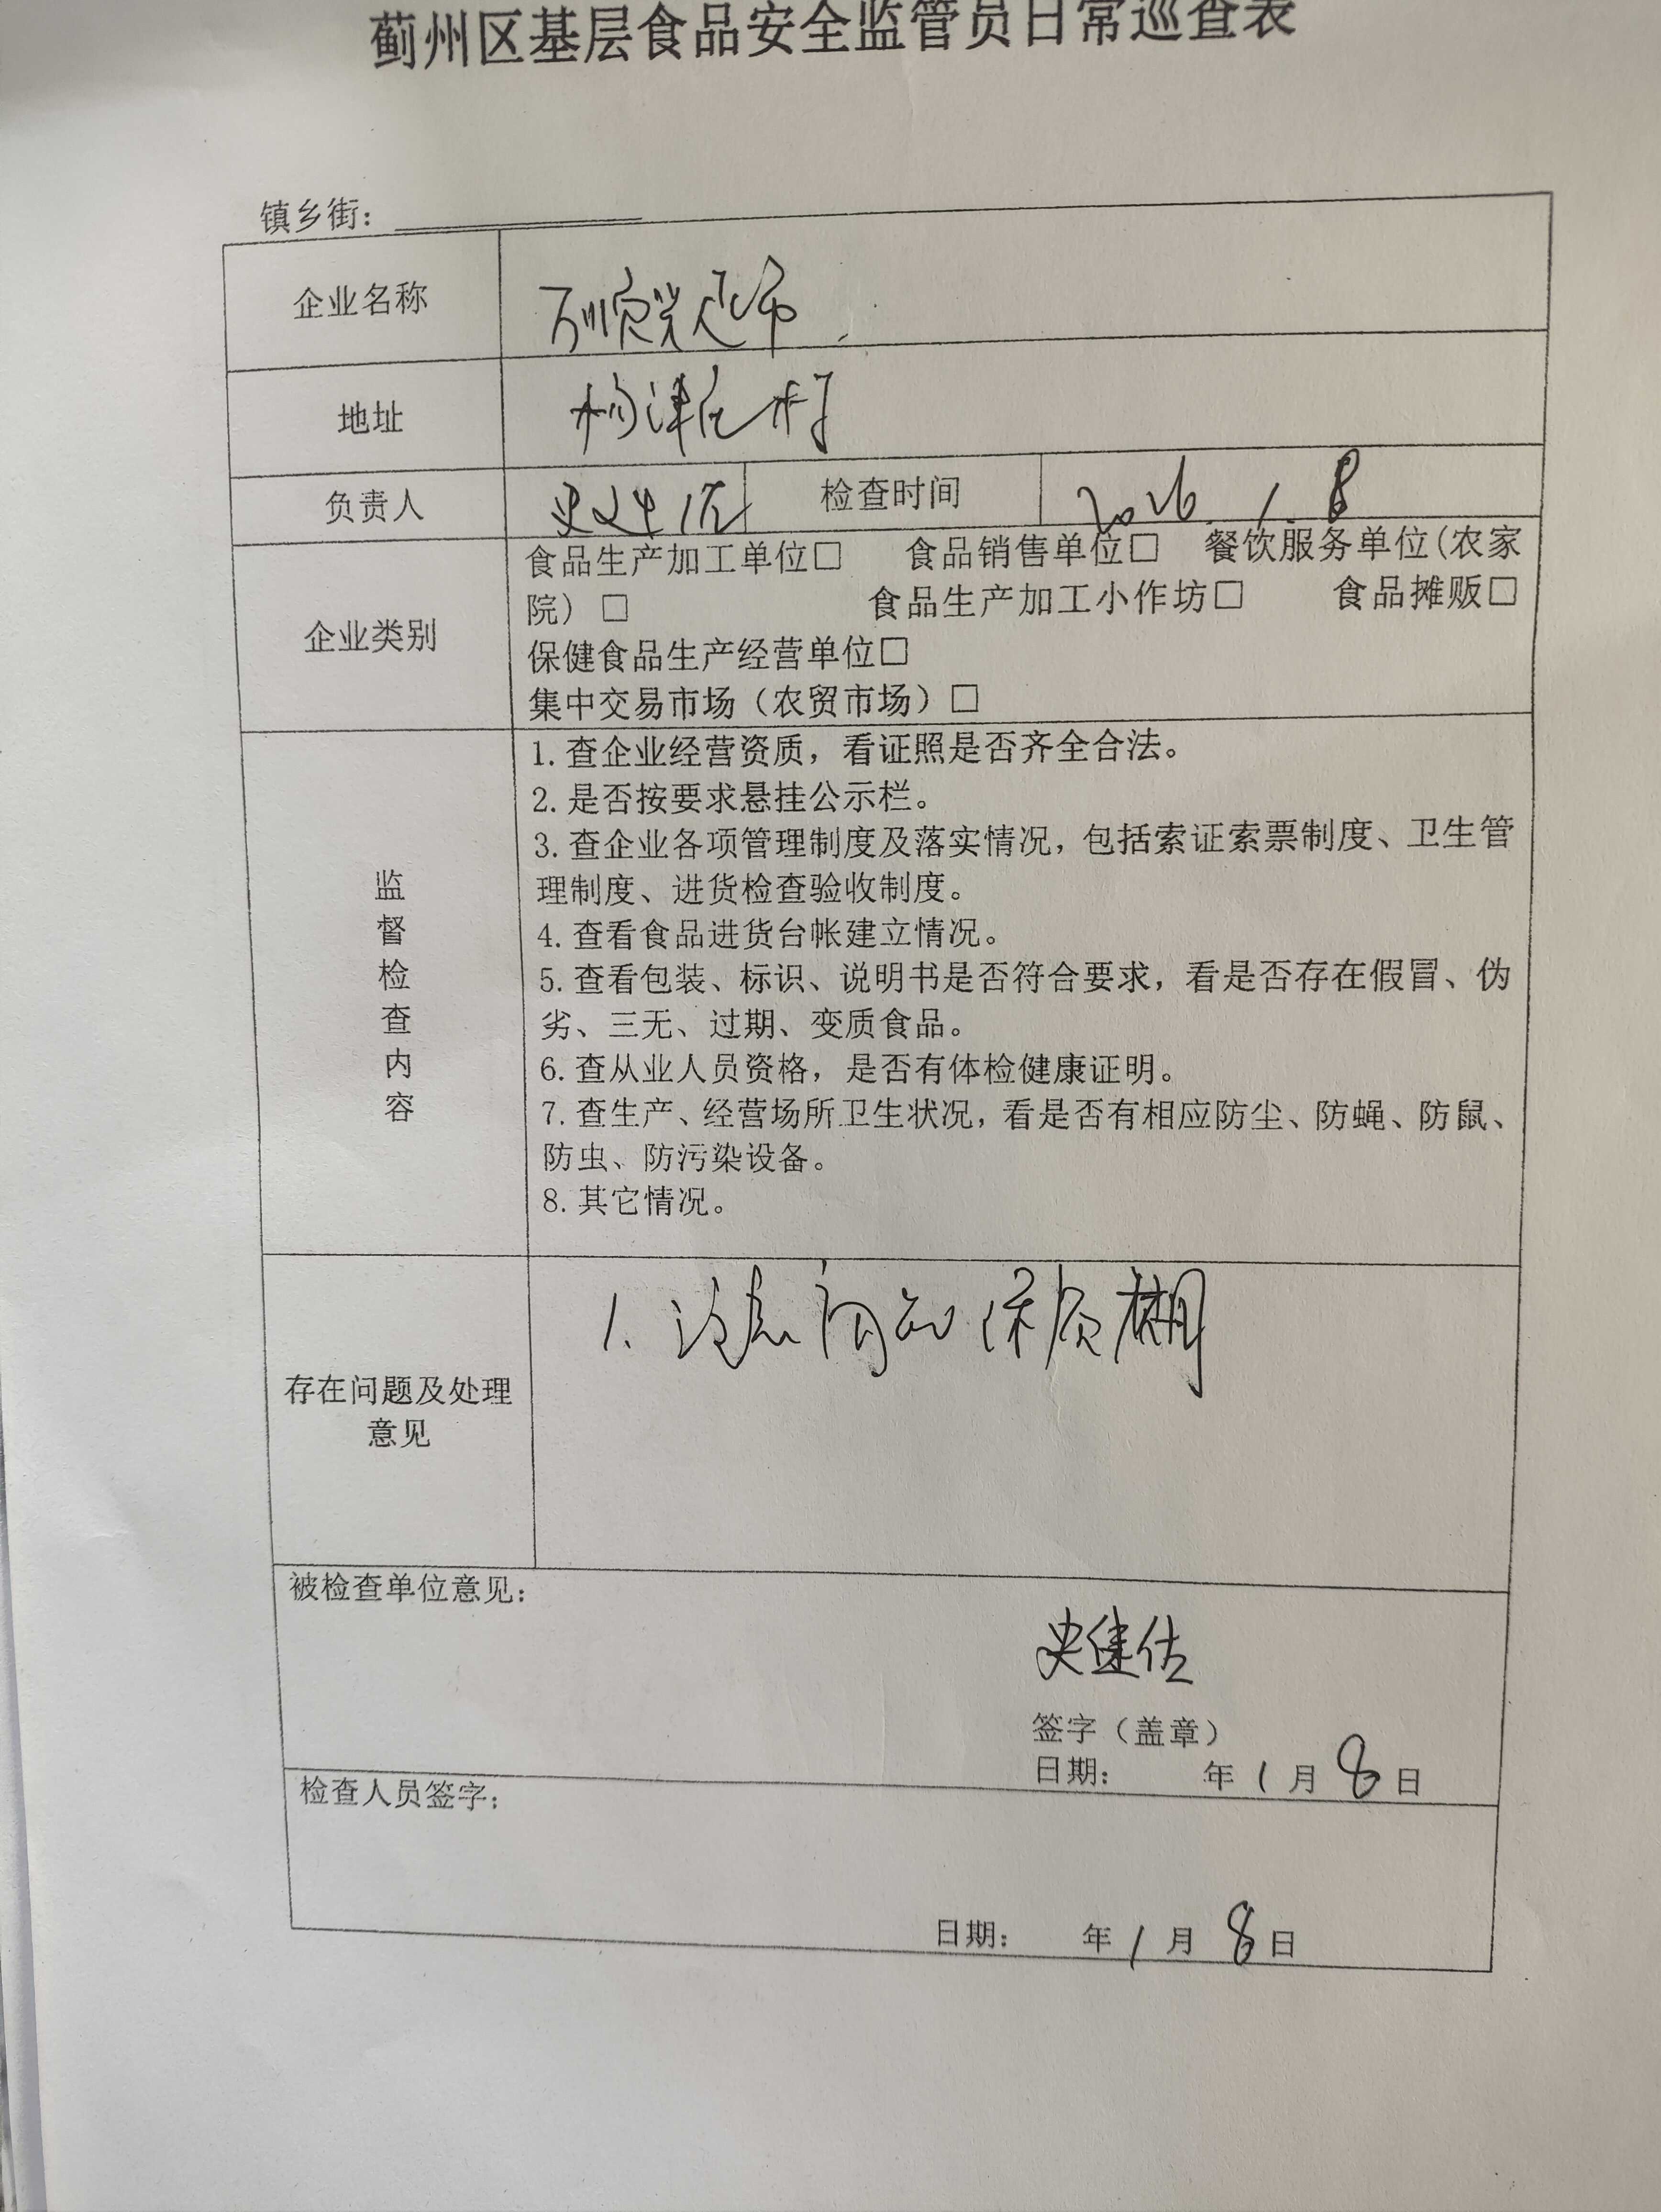 蓟州区基层食品安全监管员日常巡查表
镇乡街：
企业名称
万顺兴超市
地址
杨津庄村
负责人
检查时间
2026.1.8
企业类别
食品生产加工单位□ 食品销售单位□ 餐饮服务单位(农家
院）□ 食品生产加工小作坊□ 食品摊贩□
保健食品生产经营单位□
集中交易市场（农贸市场）□
监督检查内容
1.查企业经营资质，看证照是否齐全合法。
2.是否按要求悬挂公示栏。
3.查企业各项管理制度及落实情况，包括索证索票制度、卫生管
理制度、进货检查验收制度。
4.查看食品进货台帐建立情况。
5.查看包装、标识、说明书是否符合要求，看是否存在假冒、伪
劣、三无、过期、变质食品。
6.查从业人员资格，是否有体检健康证明。
7.查生产、经营场所卫生状况，看是否有相应防尘、防蝇、防鼠、
防虫、防污染设备。
8.其它情况。
存在问题及处理
意见
1.注意商品保质期
被检查单位意见：
签字（盖章）
日期： 年1月8日
检查人员签字：
日期： 年1月8日